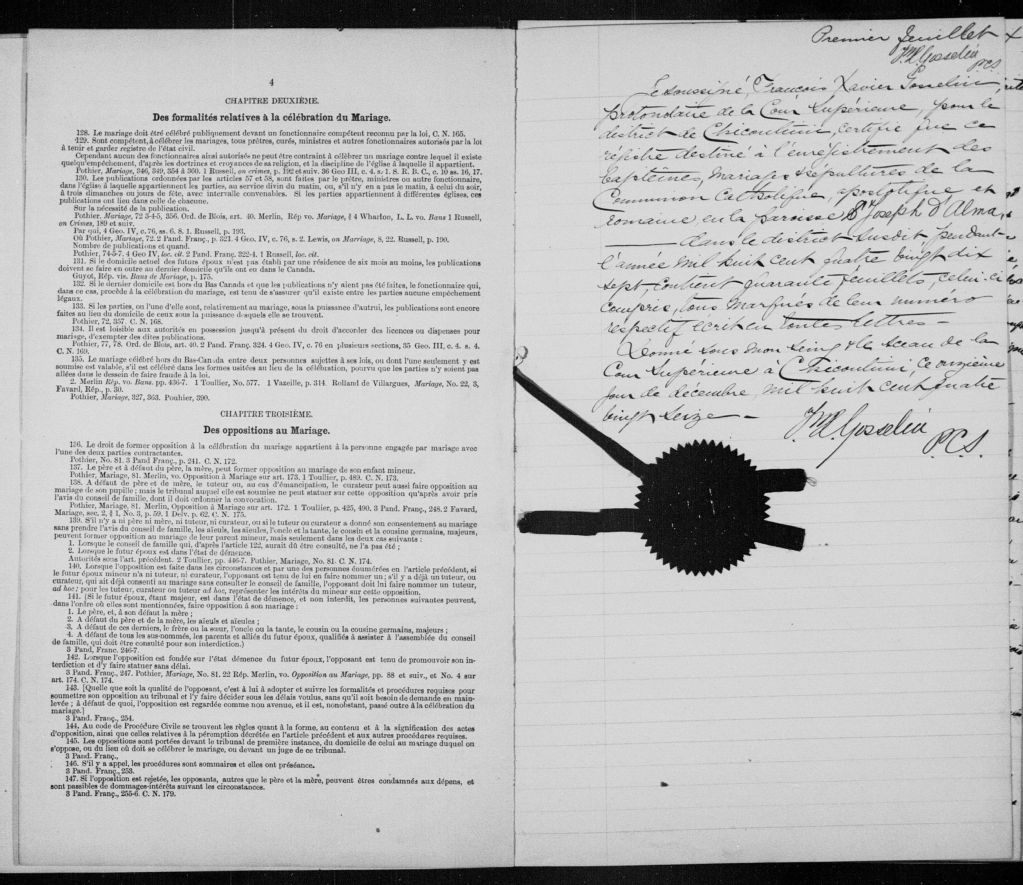 4
CHAPITRE DEUXIÈME.
Des formalités relatives à la célébration du Mariage.
128. Le mariage doit être célébré publiquement devant un fonctionnaire compétent reconnu par la loi, C. N. 165.
129. Sont compétent, à célébrer les mariages, tous prêtres, curés, ministres et autres fonctionnaires autorisés par la loi
à tenir et garder registre de l'état civil.
Cependant aucun des fonctionnaires ainsi autorisés ne peut être contraint à célébrer un mariage contre lequel il existe
quelqu'empêchement, d'après les doctrines et croyances de sa religion, et la discipline de l'église à laquelle il appartient.
Pothier, Mariage, 346, 349, 354 & 360. 1 Russell, on crimes, p. 192 et suiv. 36 Geo III, c. 4. s. 1. S. R. B. C., c. 10 ss. 16, 17.
130. Les publications ordonnées par les articles 57 et 58, sont faites par le prêtre, ministres ou autre fonctionnaire,
dans l'église à laquelle appartiennent les parties, au service divin du matin, ou, s'il n'y en a pas le matin, à celui du soir,
à trois dimanches ou jours de fête, avec intervalle convenables. Si les parties appartiennent à différentes églises, ces
publications ont lieu dans celle de chacune.
Sur la nécessité de la publication.
Pothier, Mariage, 72 3-4-5, 356. Ord. de Blois, art. 40. Merlin, Rép vo. Mariage, § 4 Wharton, L. L. vo. Bans 1 Russell,
on Crimes, 189 et suiv.
Par qui, 4 Geo. IV, c. 76, ss. 6. 8. 1. Russell, p. 193.
Où Pothier, Mariage, 72. 2 Pand. Franç., p. 321. 4 Geo. IV, c. 76, s. 2. Lewis, on Marriage, 8, 22. Russell, p. 190.
Nombre de publications et quand.
Pothier, 74-5-7. 4 Geo IV, loc. cit. 2 Pand. Franç. 322-4. 1 Russell, loc. cit.
131. Si le domicile actuel des futurs époux n'est pas établi par une résidence de six mois au moins, les publications
doivent se faire en outre au dernier domicile qu'ils ont eu dans le Canada.
Guyot, Rép. vis. Bans de Mariage, p. 175.
132. Si le dernier domicile est hors du Bas Canada et que les publications n'y aient pas été faites, le fonctionnaire qui,
dans ce cas, procède à la célébration du mariage, est tenu de s'assurer qu'il existe entre les parties aucune empêchement
légaux.
133. Si les parties, ou l'une d'elle sont, relativement au mariage, sous la puissance d'autrui, les publications sont encore
faites au lieu du domicile de ceux sous la puissance desquels elle se trouvent.
Pothier, 72, 357. C. N. 168.
134. Il est loisible aux autorités en possession jusqu'à présent du droit d'accorder des licences ou dispenses pour
mariage, d'exempter des dites publications.
Pothier, 77, 78. Ord. de Blois, art. 40. 2 Pand. Franç. 324. 4 Geo. IV, c. 76 en plusieurs sections, 35 Geo. III, c. 4. s. 4.
C. N. 169.
135. Le mariage célébré hors du Bas-Canada entre deux personnes sujettes à ses lois, ou dont l'une seulement y est
soumise est valable, s'il est célébré dans les formes usitées au lieu de la célébration, pourvu que les parties n'y soient pas
allées dans le dessein de faire fraude à la loi.
2. Merlin Rép. vo. Bans. pp. 436-7. 1 Toullier, No. 577. 1 Vazeille, p. 314. Rolland de Villargues, Mariage, No. 22, 3,
Favard, Rép., p. 30.
Pothier, Mariage, 327, 363. Pouhier, 390.
CHAPITRE TROISIÈME.
Des oppositions au Mariage.
136. Le droit de former opposition à la célébration du mariage appartient à la personne engagée par mariage avec
l'une des deux parties contractantes.
Pothier, No. 81. 3 Pand Franç., p. 241. C. N. 172.
137. Le père et à défaut du père, la mère, peut former opposition au mariage de son enfant mineur.
Pothier, Mariage, 81. Merlin, vo. Opposition à Mariage sur art. 173. 1 Toullier, p. 489. C. N. 173.
138. A défaut de père et de mère, le tuteur ou, au cas d'émancipation, le curateur peut aussi faire opposition au
mariage de son pupille; mais le tribunal auquel elle est soumise ne peut statuer sur cette opposition qu'après avoir pris
l'avis du conseil de famille, dont il doit ordonner la convocation.
Pothier, Mariage, 81. Merlin, Opposition à Mariage sur art. 172. 1 Toullier, p. 425, 490. 3 Pand. Franç., 248. 2 Favard,
Mariage, sec. 2, § I, No. 3, p. 59. 1 Delv. p. 62. C. N. 175.
139. S'il n'y a ni père ni mère, ni tuteur, ni curateur, ou si le tuteur ou curateur a donné son consentement au mariage
sans prendre l'avis du conseil de famille, les aïeuls, les aïeules, l'oncle et la tante, le cousin et la cousine germains, majeurs,
peuvent former opposition au mariage de leur parent mineur, mais seulement dans les deux cas suivants :
1. Lorsque le conseil de famille qui, d'après l'article 122, aurait dû être consulté, ne l'a pas été ;
2. Lorsque le futur époux est dans l'état de démence.
Autorités sous l'art. précédent. 2 Toullier, pp. 446-7. Pothier, Mariage, No. 81. C. N. 174.
140. Lorsque l'opposition est faite dans les circonstances et par une des personnes énumérées en l'article précédent, si
le futur époux mineur n'a ni tuteur, ni curateur, l'opposant est tenu de lui en faire nommer un ; s'il y a déjà un tuteur, ou
curateur, qui ait déjà consenti au mariage sans consulter le conseil de famille, l'opposant doit lui faire nommer un tuteur,
ad hoc : pour les tuteur, curateur ou tuteur ad hoc, représenter les intérêts du mineur sur cette opposition.
141. (Si le futur époux, étant majeur, est dans l'état de démence, et non interdit, les personnes suivantes peuvent,
dans l'ordre où elles sont mentionnées, faire opposition à son mariage :
1. Le père, et, à son défaut la mère ;
2. A défaut du père et de la mère, les aïeuls et aïeules ;
3. A défaut de ces derniers, le frère ou la sœur, l'oncle ou la tante, le cousin ou la cousine germains, majeurs ;
4. A défaut de tous les sus-nommés, les parents et alliés du futur époux, qualifiés à assister à l'assemblée du conseil
de famille, qui doit être consulté pour son interdiction.)
3 Pand. Franc. 246-7.
142. Lorsque l'opposition est fondée sur l'état démence du futur époux, l'opposant est tenu de promouvoir son in-
terdiction et d'y faire statuer sans délai.
3 Pand. Franç., 247. Pothier, Mariage, No. 81. 22 Rép. Merlin, vo. Opposition au Mariage, pp. 88 et suiv., et No. 4 sur
art. 174. C. N. 174.
143. [Quelle que soit la qualité de l'opposant, c'est à lui à adopter et suivre les formalités et procédures requises pour
soumettre son opposition au tribunal et l'y faire décider sous les délais voulus, sans qu'il soit besoin de demande en main-
levée ; à défaut de quoi, l'opposition est regardée comme non avenue, et il est, nonobstant, passé outre à la célébration du
mariage.]
3 Pand. Franç., 254.
144. Au code de Procédure Civile se trouvent les règles quant à la forme, au contenu et à la signification des actes
d'opposition, ainsi que celles relatives à la péremption décrétée en l'article précédent et aux autres procédures requises.
145. Les oppositions sont portées devant le tribunal de première instance, du domicile de celui au mariage duquel on
s'oppose, ou du lieu où doit se célébrer le mariage, ou devant un juge de ce tribunal.
3 Pand. Franç.,
146. S'il y a appel, les procédures sont sommaires et elles ont préséance.
3 Pand. Franç., 253.
147. Si l'opposition est rejetée, les opposants, autres que le père et la mère, peuvent être condamnés aux dépens, et
sont passibles de dommages-intérêts suivant les circonstances.
3 Pand. Franç., 255-6. C. N. 179.
Premier feuillet
F.X. Gosselin
P.C.S.
Je soussigné, François Xavier Gosselin,
protonotaire de la Cour Supérieure, pour le
district de Chicoutimi, certifie que ce
registre destiné à l'enregistrement des
baptêmes, mariages & sépultures de la
Communion Catholique, apostolique et
romaine, en la paroisse St Joseph d'Alma,
dans le district susdit pendant
l'année mil huit cent quatre vingt dix
sept, contient quarante feuillets, celui-ci
compris, tous marqués de leur numéro
respectif écrit en toutes lettres –
Donné sous mon seing & le sceau de la
Cour Supérieure à Chicoutimi, ce onzième
jour de décembre, mil huit cent quatre
vingt seize –
F.X. Gosselin
P.C.S.